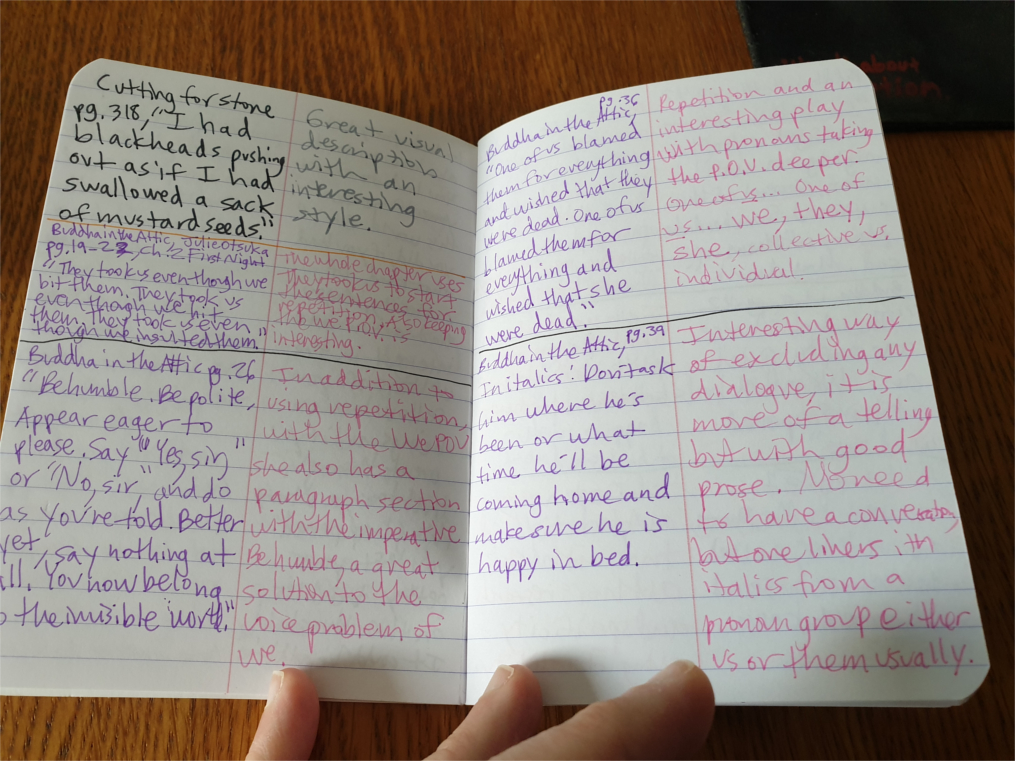 Cutting for stone
pg. 318, "I had
blackheads pushing
out as if I had
swallowed a sack
of mustard seeds."
Great visual
description
with an
interesting
style.
Buddha in the Attic, Julie Otsuka
pg. 19-22, Ch. 2 First Night
"They took us even though we
bit them. They took us
even though we hit
them. They took us even
though we insulted them."
The whole chapter uses
They took us to start
the sentences for
repetition. Also keeping
the we P.O.V. is
interesting.
Buddha in the Attic pg. 26
"Be humble. Be polite,
Appear eager to
please. Say "Yes, sir"
or "No, sir," and do
as you're told. Better
yet, say nothing at
all. You now belong
to the invisible world."
In addition to
using repetition,
with the We POV
she also has a
paragraph section
with the imperative
Be humble, a great
solution to the
voice problem of
we.
pg. 36
Buddha in the Attic,
"One of us blamed
them for everything
and wished that they
were dead. One of us
blamed them for
everything and
wished that she
were dead."
Repetition and an
interesting play
with pronouns taking
the P.O.V. deeper.
One of us... One of
us... we, they,
she, collective vs.
individual.
Buddha in the Attic, pg. 39
In italics: Don't ask
him where he's
been or what
time he'll be
coming home and
make sure he is
happy in bed.
Interesting way
of excluding any
dialogue, it is
more of a telling
but with good
prose. No need
to have a conversation,
but one liners ith
italics from a
pronoun group either
us or them usually.